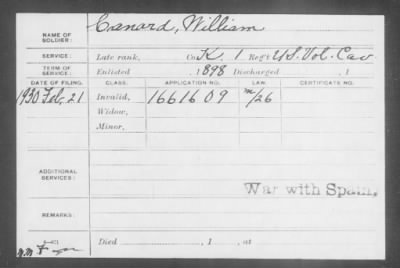 NAME OF SOLDIER: Canard, William
SERVICE: Late rank, Co. K, 1 Reg't U.S. Vol. Cav
TERM OF SERVICE: Enlisted 1898 Discharged , 1
DATE OF FILING. CLASS. APPLICATION NO. LAW. CERTIFICATE NO.
1930 Feb. 21 Invalid, 1661609 m/26
Widow,
Minor,
ADDITIONAL SERVICES:
War with Spain.
REMARKS:
Died , 1 , at